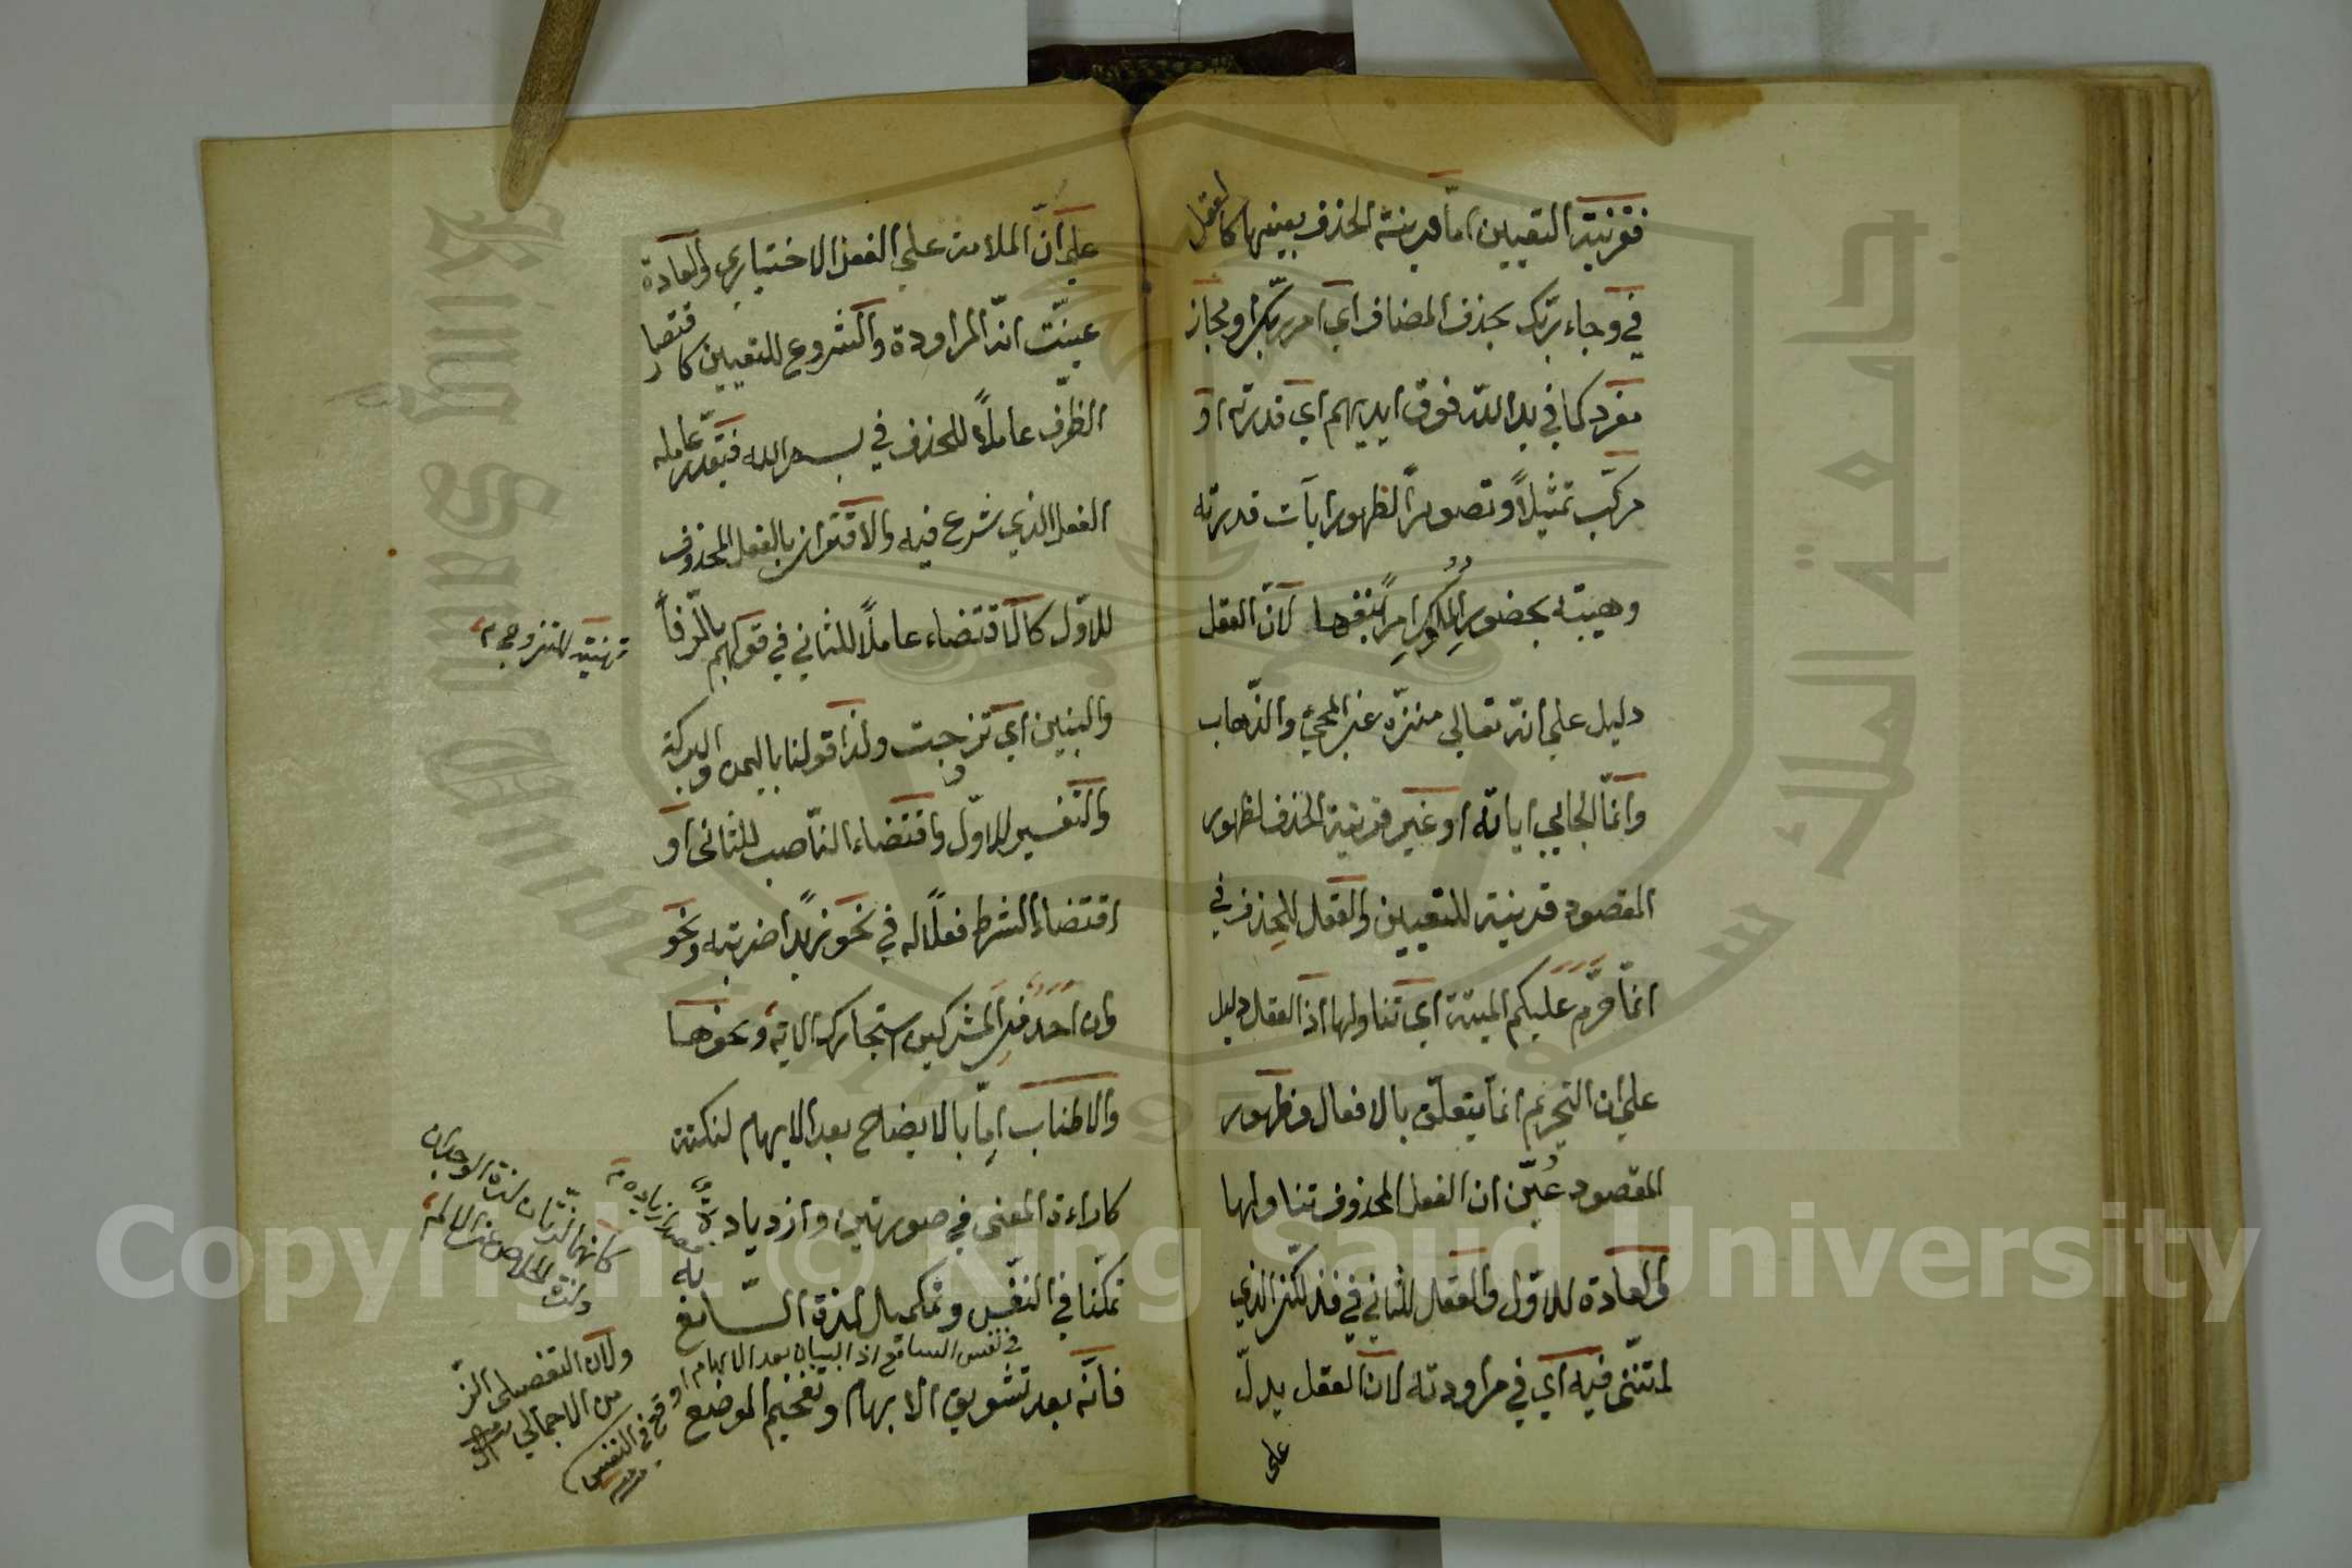 فقرينة التعيين امّا قرينة الحذف بعينها كالعقل
في وجاء ربّك بحذف المضاف اي امر ربّك او مجاز
مفرد كما في يد الله فوق ايديهم اي قدرته او
مركّب تمثيلاً وتصويراً لظهور آيات قدرته
وهيبته بحضور الملوك لانّ العقل
دليل على انّه تعالى منزّه عن المجيء والذّهاب
وانّما الجائي اياته او غير قرينة الحذف لظهور
المقصود قرينة للتعيين والعقل للحذف في
انّما حرّم عليكم الميتة اي تناولها اذ العقل دليل
على ان التحريم انّما يتعلّق بالافعال وظهور
المقصود عُيّن ان الفعل المحذوف تناولها
والعادة للاوّل والعقل للثاني في فذلكنّ الذي
لمتنّنى فيه اي في مراودته لانّ العقل يدلّ
على
على انّ الملامة على الفعل الاختياري والعادة
عيّنت انّه المراودة والشروع للتعيين كاقتضاء
الظّرف عاملاً للحذف في بسم الله فتقدّر عامله
الفعل الذي شرع فيه والاقتران بالفعل المحذوف
للاوّل كالاقتضاء عاملاً للثاني في قولهم بالرّفاء
تهنئة للتزوج م
والبنين اي تزوجت ولذا قولنا باليمن والبركة
والتفسير للاوّل واقتضاء النّاصب للثانى او
اقتضاء الشرط فعلاً له في نحو زيداً ضربته ونحو
وان احد من المشركين استجارك الاية ونحوها
والاطناب امّا بالايضاح بعد الايهام لنكتة
كاراءة المعنى في صورتين وازدياده
مصدر زياده م
تمكّنا في النّفس وتمكميل لذة السّامع به
في نفس السامع اذ البيان بعد الابهام اوقع في النفس
فانّه بعد تشويق الابهام وتفخيم الموضع
كانها لذّتان لذة الوجدان
ولذة الخلاص عن الالم
ولان التفصيلى الذّ
من الاجمالي